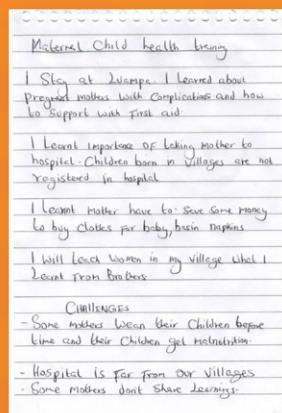 Maternal Child health training
I Stay at Luampa. I learned about
pregnant mothers with Complications and how
to Support with First aid.
I Learnt importance OF taking mother to
hospital. Children born in villages are not
registered in hospital
I learnt mother have to. Save Some money
to buy clothes For baby, basin napkins
I will teach women in my village what I
Learnt From Brothers
CHALLENGES
- Some mothers wean their Children before
time and their Children get malnutrition.
- Hospital is Far From our villages
- Some mothers don't Share Learnings.